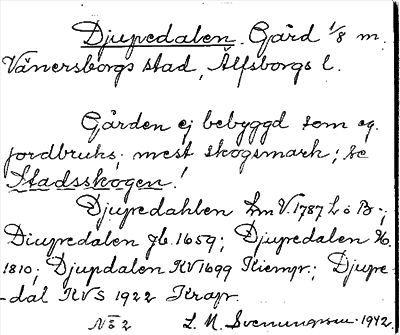 Djupedalen. Gård 1/8 m.
Vänersborgs stad, Älfsborgs l.
Gården ej bebyggd som eg.
jordbruks; mest skogsmark; se
Stadsskogen!
Djupedahlen Lm V. 1787 L ö B.;
Diupedalen Jb. 1659; Djupedalen
1810; Djupdalen KV 1699 Kiempr.; Djupe-
-dal KVS 1922 Krapr.
No 2 L. M. Svenungsson. 1942.